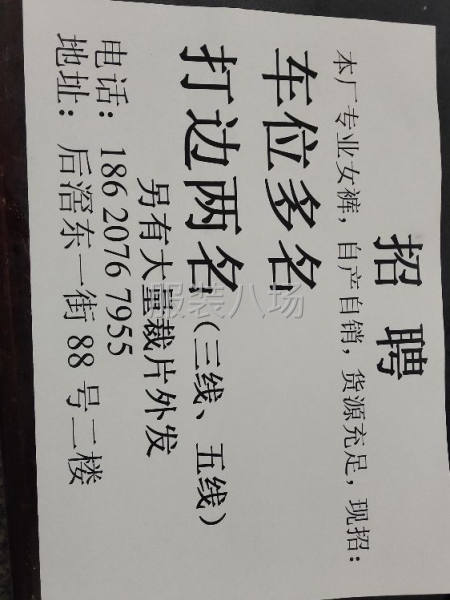 招聘
本厂专业女裤，自产自销，货源充足，现招：
车位多名
打边两名（三线、五线）
另有大量裁片外发
电话：186 2076 7955
地址：后滘东一街 88 号二楼
服装八场